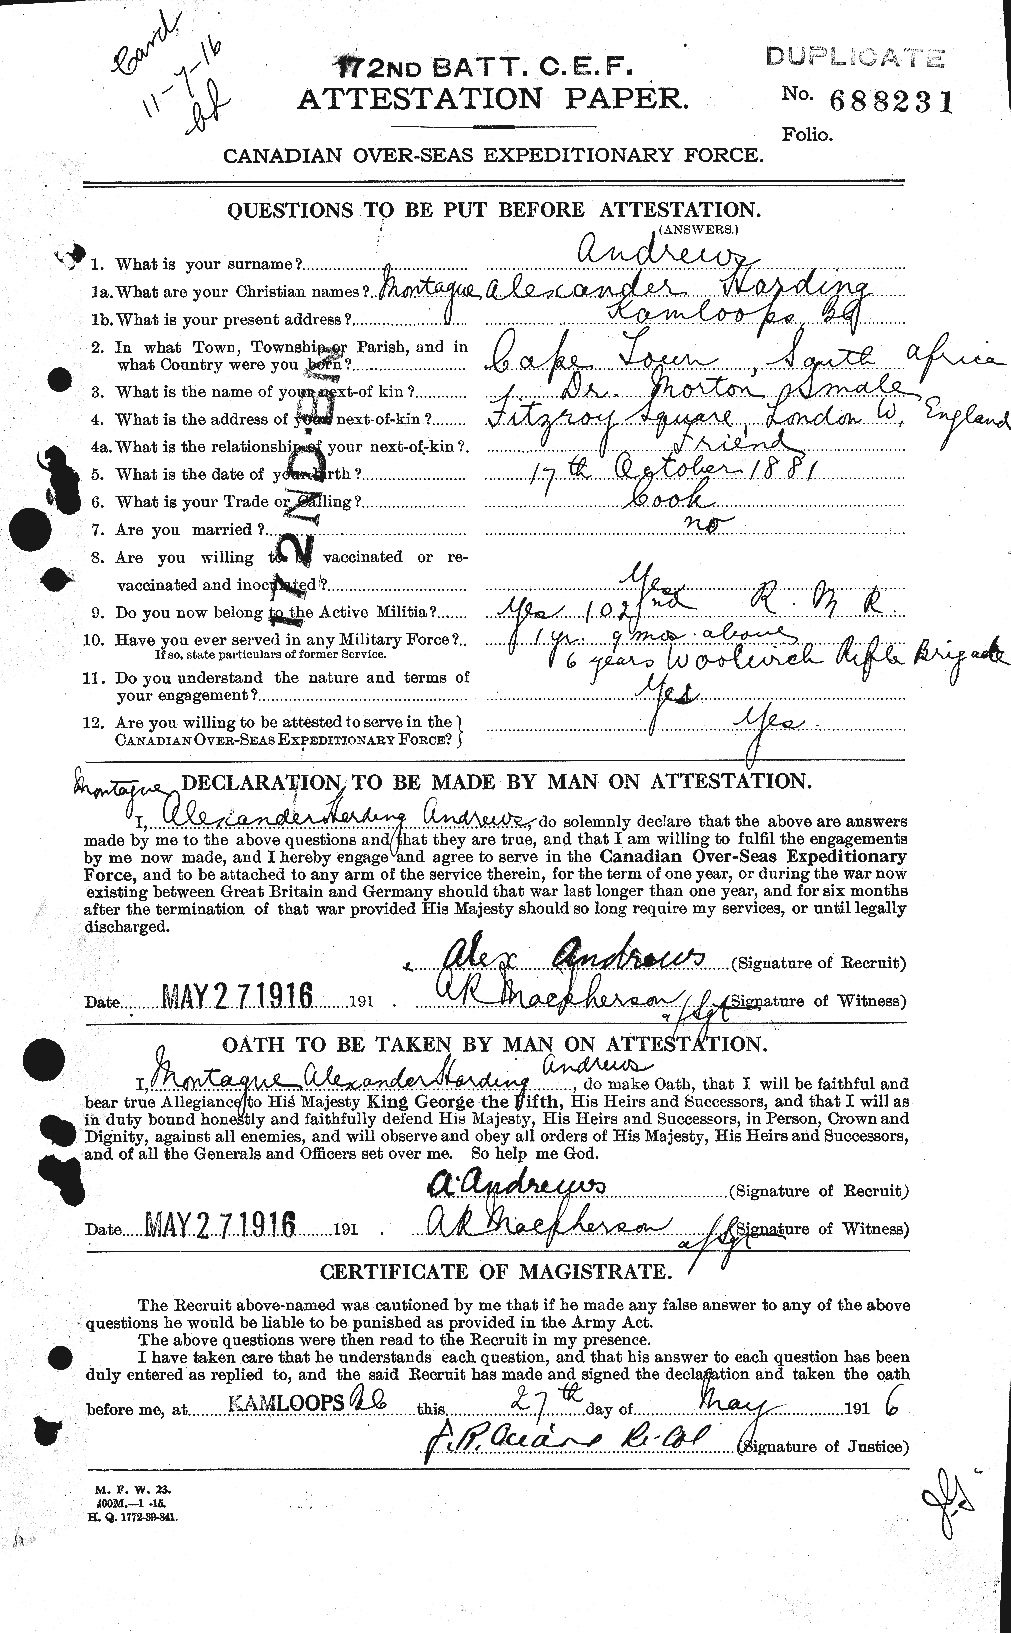 Card
11-7-16
172ND BATT. C.E.F.
DUPLICATE
ATTESTATION PAPER.
No. 688231
Folio.
CANADIAN OVER-SEAS EXPEDITIONARY FORCE.
QUESTIONS TO BE PUT BEFORE ATTESTATION.
(ANSWERS.)
1. What is your surname? Andrews
1a. What are your Christian names? Montague Alexander Harding
1b. What is your present address? Kamloops BC
2. In what Town, Township or Parish, and in
what Country were you born? Cape Town, South Africa
3. What is the name of your next-of kin? Dr. Morton Smale
4. What is the address of your next-of-kin? Fitzroy Square, London W. England
4a. What is the relationship of your next-of-kin? Friend
5. What is the date of your birth? 17th October 1881
6. What is your Trade or Calling? Cook
7. Are you married? no
8. Are you willing to be vaccinated or re-
vaccinated and inoculated? Yes
9. Do you now belong to the Active Militia? Yes 102nd R. M R.
10. Have you ever served in any Military Force? 1 yr. 9 mos. above
If so, state particulars of former Service. 6 years Woolwich Rifle Brigade
11. Do you understand the nature and terms of
your engagement? Yes
12. Are you willing to be attested to serve in the
CANADIAN OVER-SEAS EXPEDITIONARY FORCE? Yes.
172ND. BN
DECLARATION TO BE MADE BY MAN ON ATTESTATION.
Montague
I, Alexander Harding Andrews, do solemnly declare that the above are answers
made by me to the above questions and that they are true, and that I am willing to fulfil the engagements
by me now made, and I hereby engage and agree to serve in the Canadian Over-Seas Expeditionary
Force, and to be attached to any arm of the service therein, for the term of one year, or during the war now
existing between Great Britain and Germany should that war last longer than one year, and for six months
after the termination of that war provided His Majesty should so long require my services, or until legally
discharged.
Alex Andrews (Signature of Recruit)
Date MAY 27 1916 191 . AR Macpherson a/Sgt (Signature of Witness)
OATH TO BE TAKEN BY MAN ON ATTESTATION.
I, Montague Alexander Harding Andrews, do make Oath, that I will be faithful and
bear true Allegiance to His Majesty King George the Fifth, His Heirs and Successors, and that I will as
in duty bound honestly and faithfully defend His Majesty, His Heirs and Successors, in Person, Crown and
Dignity, against all enemies, and will observe and obey all orders of His Majesty, His Heirs and Successors,
and of all the Generals and Officers set over me. So help me God.
A. Andrews (Signature of Recruit)
Date MAY 27 1916 191 . AR Macpherson a/Sgt (Signature of Witness)
CERTIFICATE OF MAGISTRATE.
The Recruit above-named was cautioned by me that if he made any false answer to any of the above
questions he would be liable to be punished as provided in the Army Act.
The above questions were then read to the Recruit in my presence.
I have taken care that he understands each question, and that his answer to each question has been
duly entered as replied to, and the said Recruit has made and signed the declaration and taken the oath
before me, at KAMLOOPS BC this 27th day of May 1916
J.R. (Signature of Justice)
M. F. W. 23.
400M.—1-15.
H. Q. 1772-39-841.